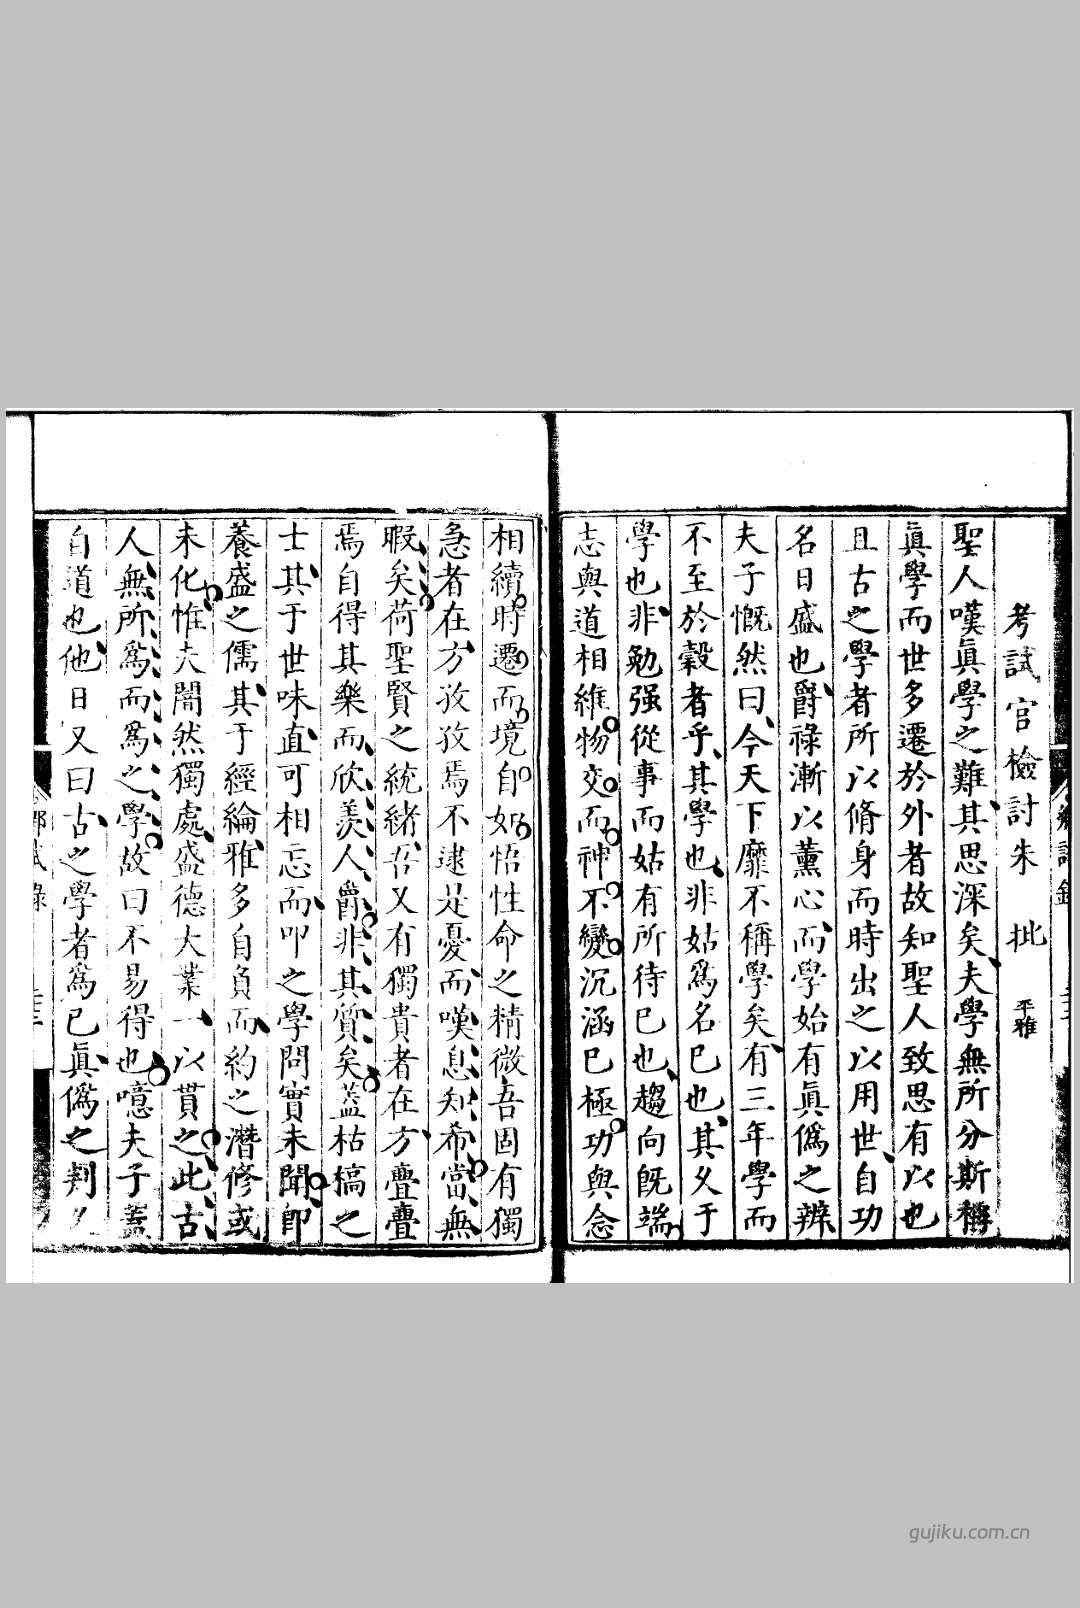 考試官檢討朱　批　平雅
聖人嘆眞學之難其思深矣夫學無所分斯稱
眞學而世多遷於外者故知聖人致思有以也
且古之學者所以脩身而時出之以用世自功
名日盛也爵祿漸以薰心而學始有眞僞之辨
夫子慨然曰今天下靡不稱學矣有三年學而
不至於穀者乎其學也非姑爲名巳也其父于
學也非勉强從事而姑有所待巳也趨向旣端
志與道相維物交而神不變沉涵巳極功與念
相續時遷而境自如悟性命之精微吾固有獨
急者在方孜孜焉不逮是憂而嘆息知希當無
暇矣荷聖賢之統緒吾又有獨貴者在方亹亹
焉自得其樂而欣羨人爵非其質矣蓋枯槁之
士其于世味直可相忘而叩之學問實未聞卽
養盛之儒其于經綸雅多自負而約之潛修或
未化惟夫闇然獨處盛德大業一以貫之此古
人無所爲而爲之學故曰不易得也噫夫子蓋
自道也他日又曰古之學者爲巳眞僞之判
鄉試錄
gujiku.com.cn